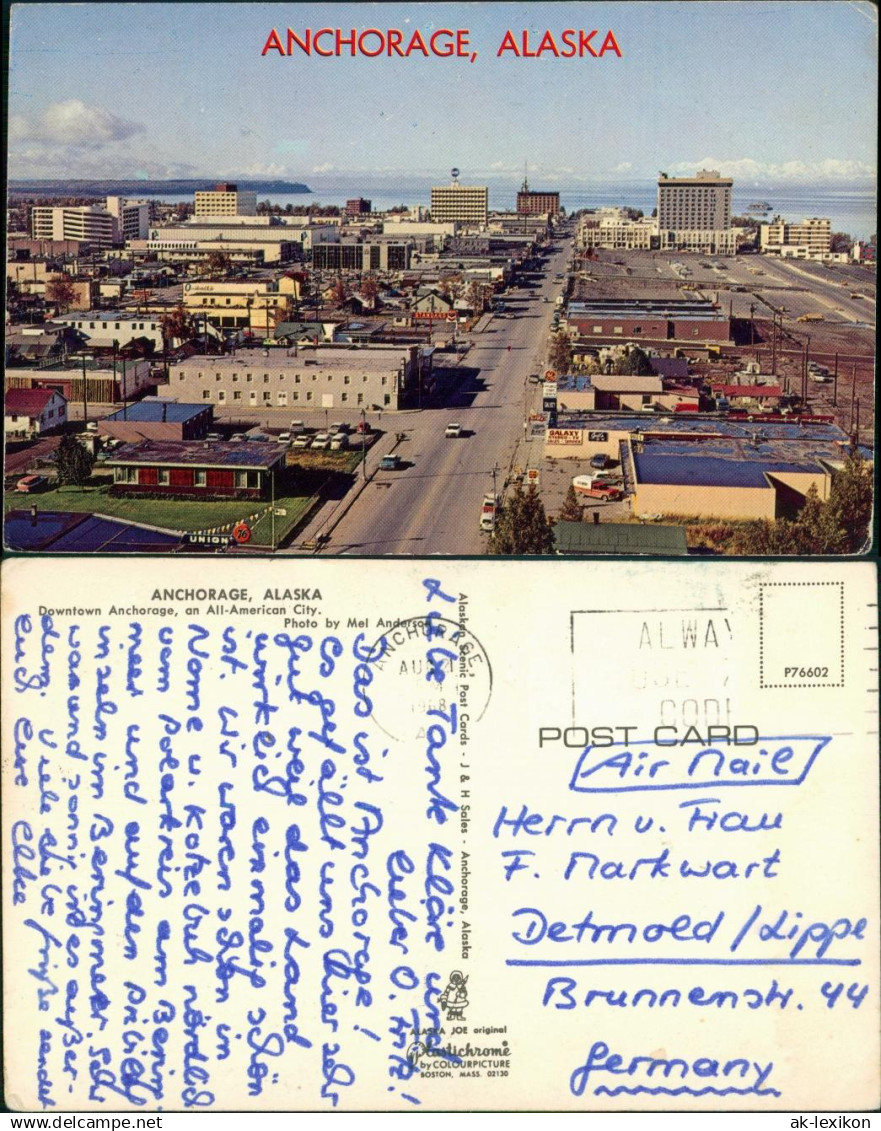 ANCHORAGE, ALASKA
GALAXY
UNION 76
ANCHORAGE, ALASKA
Downtown Anchorage, an All-American City.
Photo by Mel Anderson
Alaskan Scenic Post Cards - J & H Sales - Anchorage, Alaska
ANCHORAGE,
AUG
1968
ALWA
USE
CODE
P76602
POST CARD
Air Mail
Herrn u. Frau
F. Markwart
Detmold/Lippe
Brunnenstr. 44
Germany
Liebe Tante Kläre und
lieber O. Fritz!
Das ist Anchorage!
Es gefällt uns hier sehr
gut weil das Land
wirklich einmalig schön
ist. Wir waren schon in
Nome u. Kotzebuh nördlich
vom Polarkreis am Bering
meer und auf den Pribilof
inseln im Beringmeer. Sehr
warm und sonnig ist es außer-
dem. Viele liebe Grüße sendet
Euch Eure Elke
ALASKA JOE original
Plastichrome
by COLOURPICTURE
BOSTON, MASS. 02130
ak-lexikon